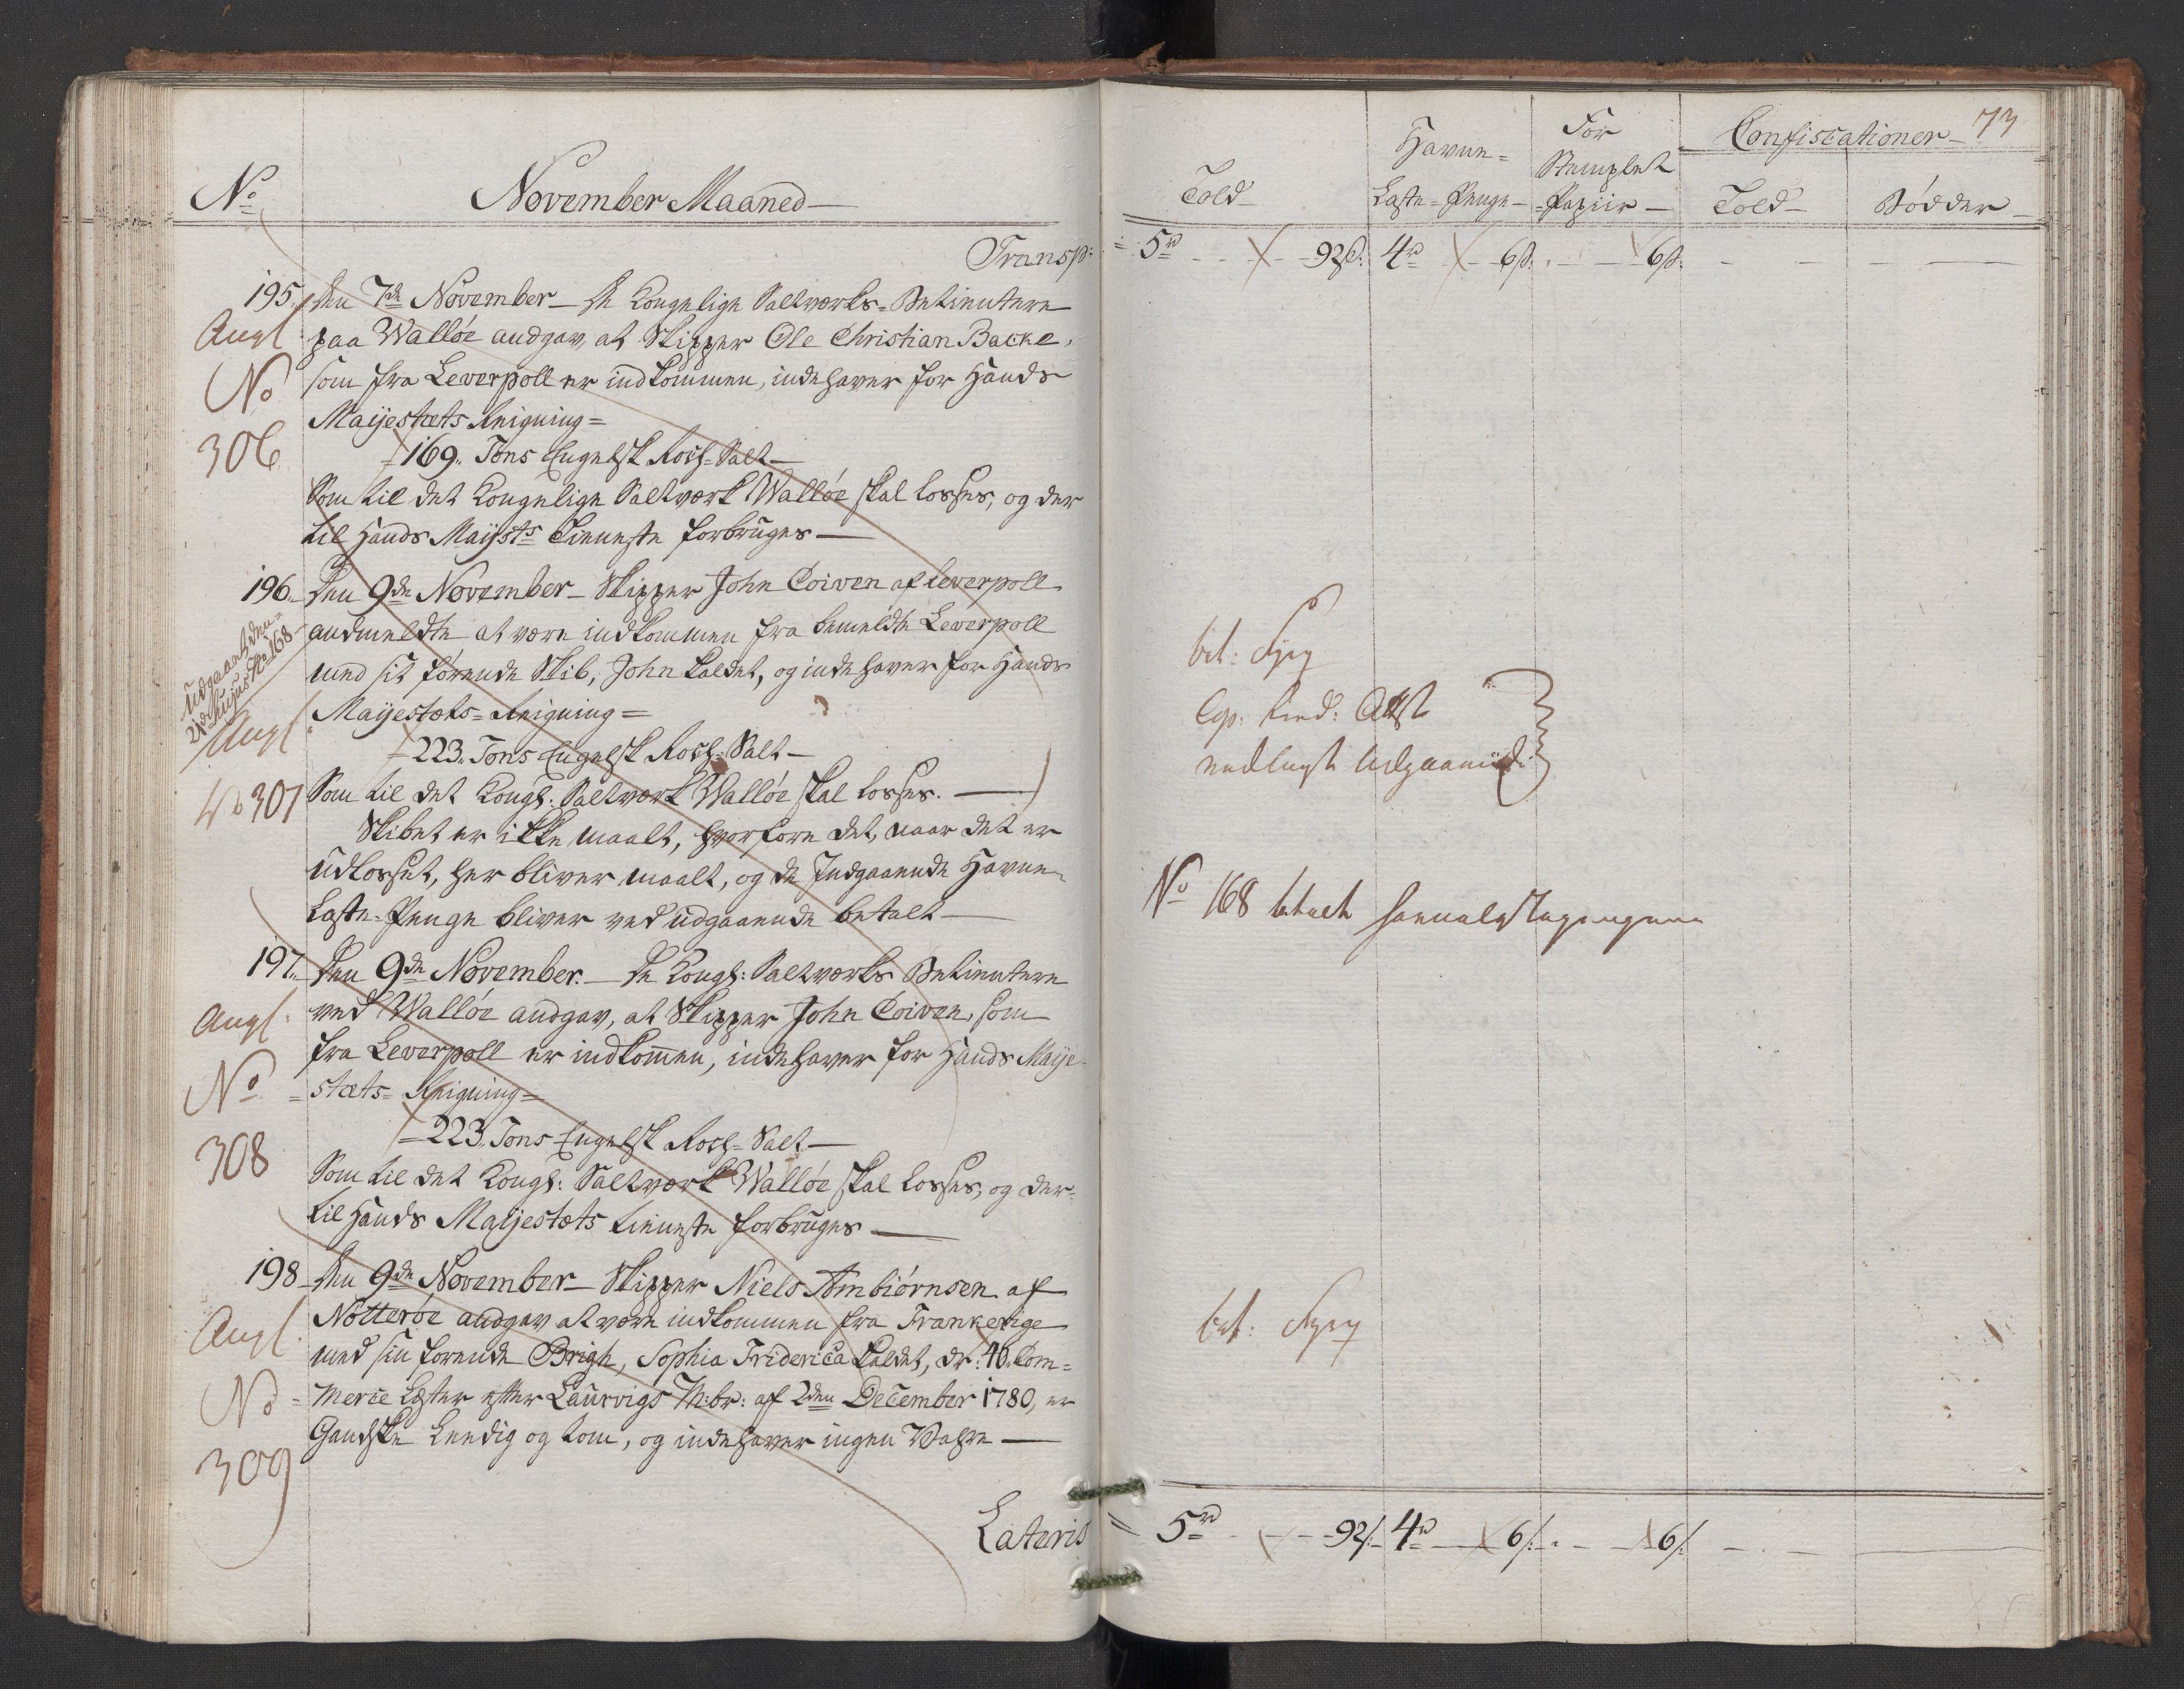 No
November Maaned
Transp:
195. Den 7de November - De Kongelige Saltverks-Betientere
paa Walløe andgav, at Skipper Ole Christian Backe,
som fra Leverpoll er indkommen, indehaver for Hands
Maijestæts Regning =
169. Tons Engelsk Roch-Salt
Som til det Kongelige Saltværk Walløe skal losses, og der
til Hands Maijsts Tieneste forbruges
Angl
No
306
196. Den 9de November - Skipper John Coiven af Leverpoll
andmeldte at være indkommen fra bemeldte Leverpoll
med sit førende Skib, John kaldet, og indehaver for Hands
Maijestæts-Regning =
223. Tons Engelsk Roch-Salt
Som til det Kongl: Saltværk Walløe skal losses.
Skibet er ikke maalt, hvorfore det, naar det er
udlosset, her bliver maalt, og de Indgaaende Havne-
Laste-Penge bliver ved udgaaende betalt
Udgaaende
No 168
Angl
No 307
197. Den 9de November. - De Kongl: Saltværks Betientere
ved Walløe andgav, at Skipper John Coiven, som
fra Leverpoll er indkomen, indehaver for Hands Maije-
stæts-Regning =
223. Tons Engelsk Roch-Salt
Som til det Kongl: Saltværk Walløe skal losses, og der-
til Hands Maijestæts tieneste forbruges
Angl:
No
308
198 Den 9de November - Skipper Niels Ambiørnsen af
Nøtterøe andgav at være indkommen fra Frankerige
med sin førende Brigh, Sophia Friderica kaldet, dr: 46. Com-
merce Læster efter Laurvigs M:br: af 2den December 1780, er
Gandske Leedig og tom, og indehaver ingen Vahre
Angl
No
309
Lateris
73
Told
Havne-
Laste-Penge
For
Stemplet
Papiir
Confiscationer
Told
Bødder
5rd 92s: 4rd 6s: 6s:
bet:
nedlagt Udgaaende
No 168 betalt
bet:
5rd 92s 4rd 6s. 6s: